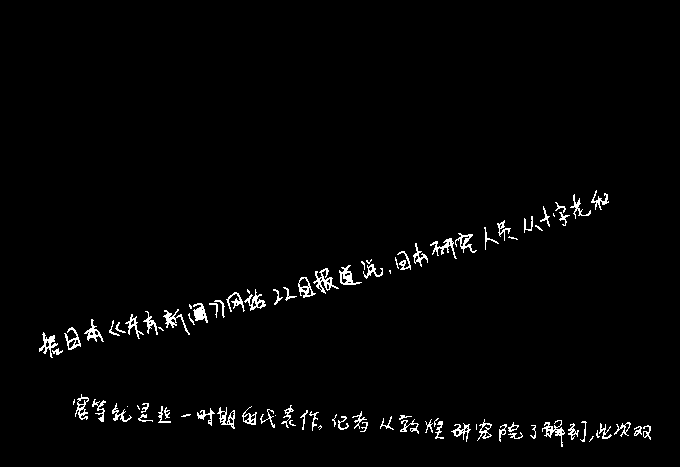 据日本《东京新闻》网站22日报道说,日本研究人员从十字花和
窟等就是这一时期的代表作,记者从敦煌研究院了解到,此次双